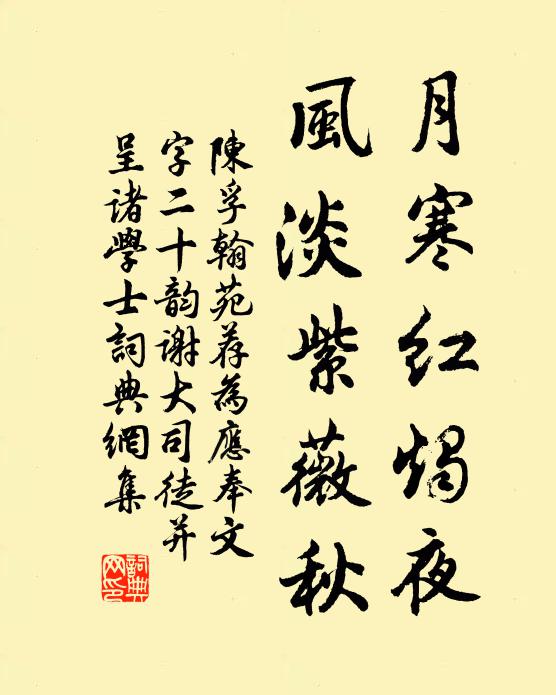 月寒红燭夜
風淡紫薇秋
陳孚翰苑荐為應奉文
字二十韵谢大司徒并
呈诸學士詞典網集
詞典网印